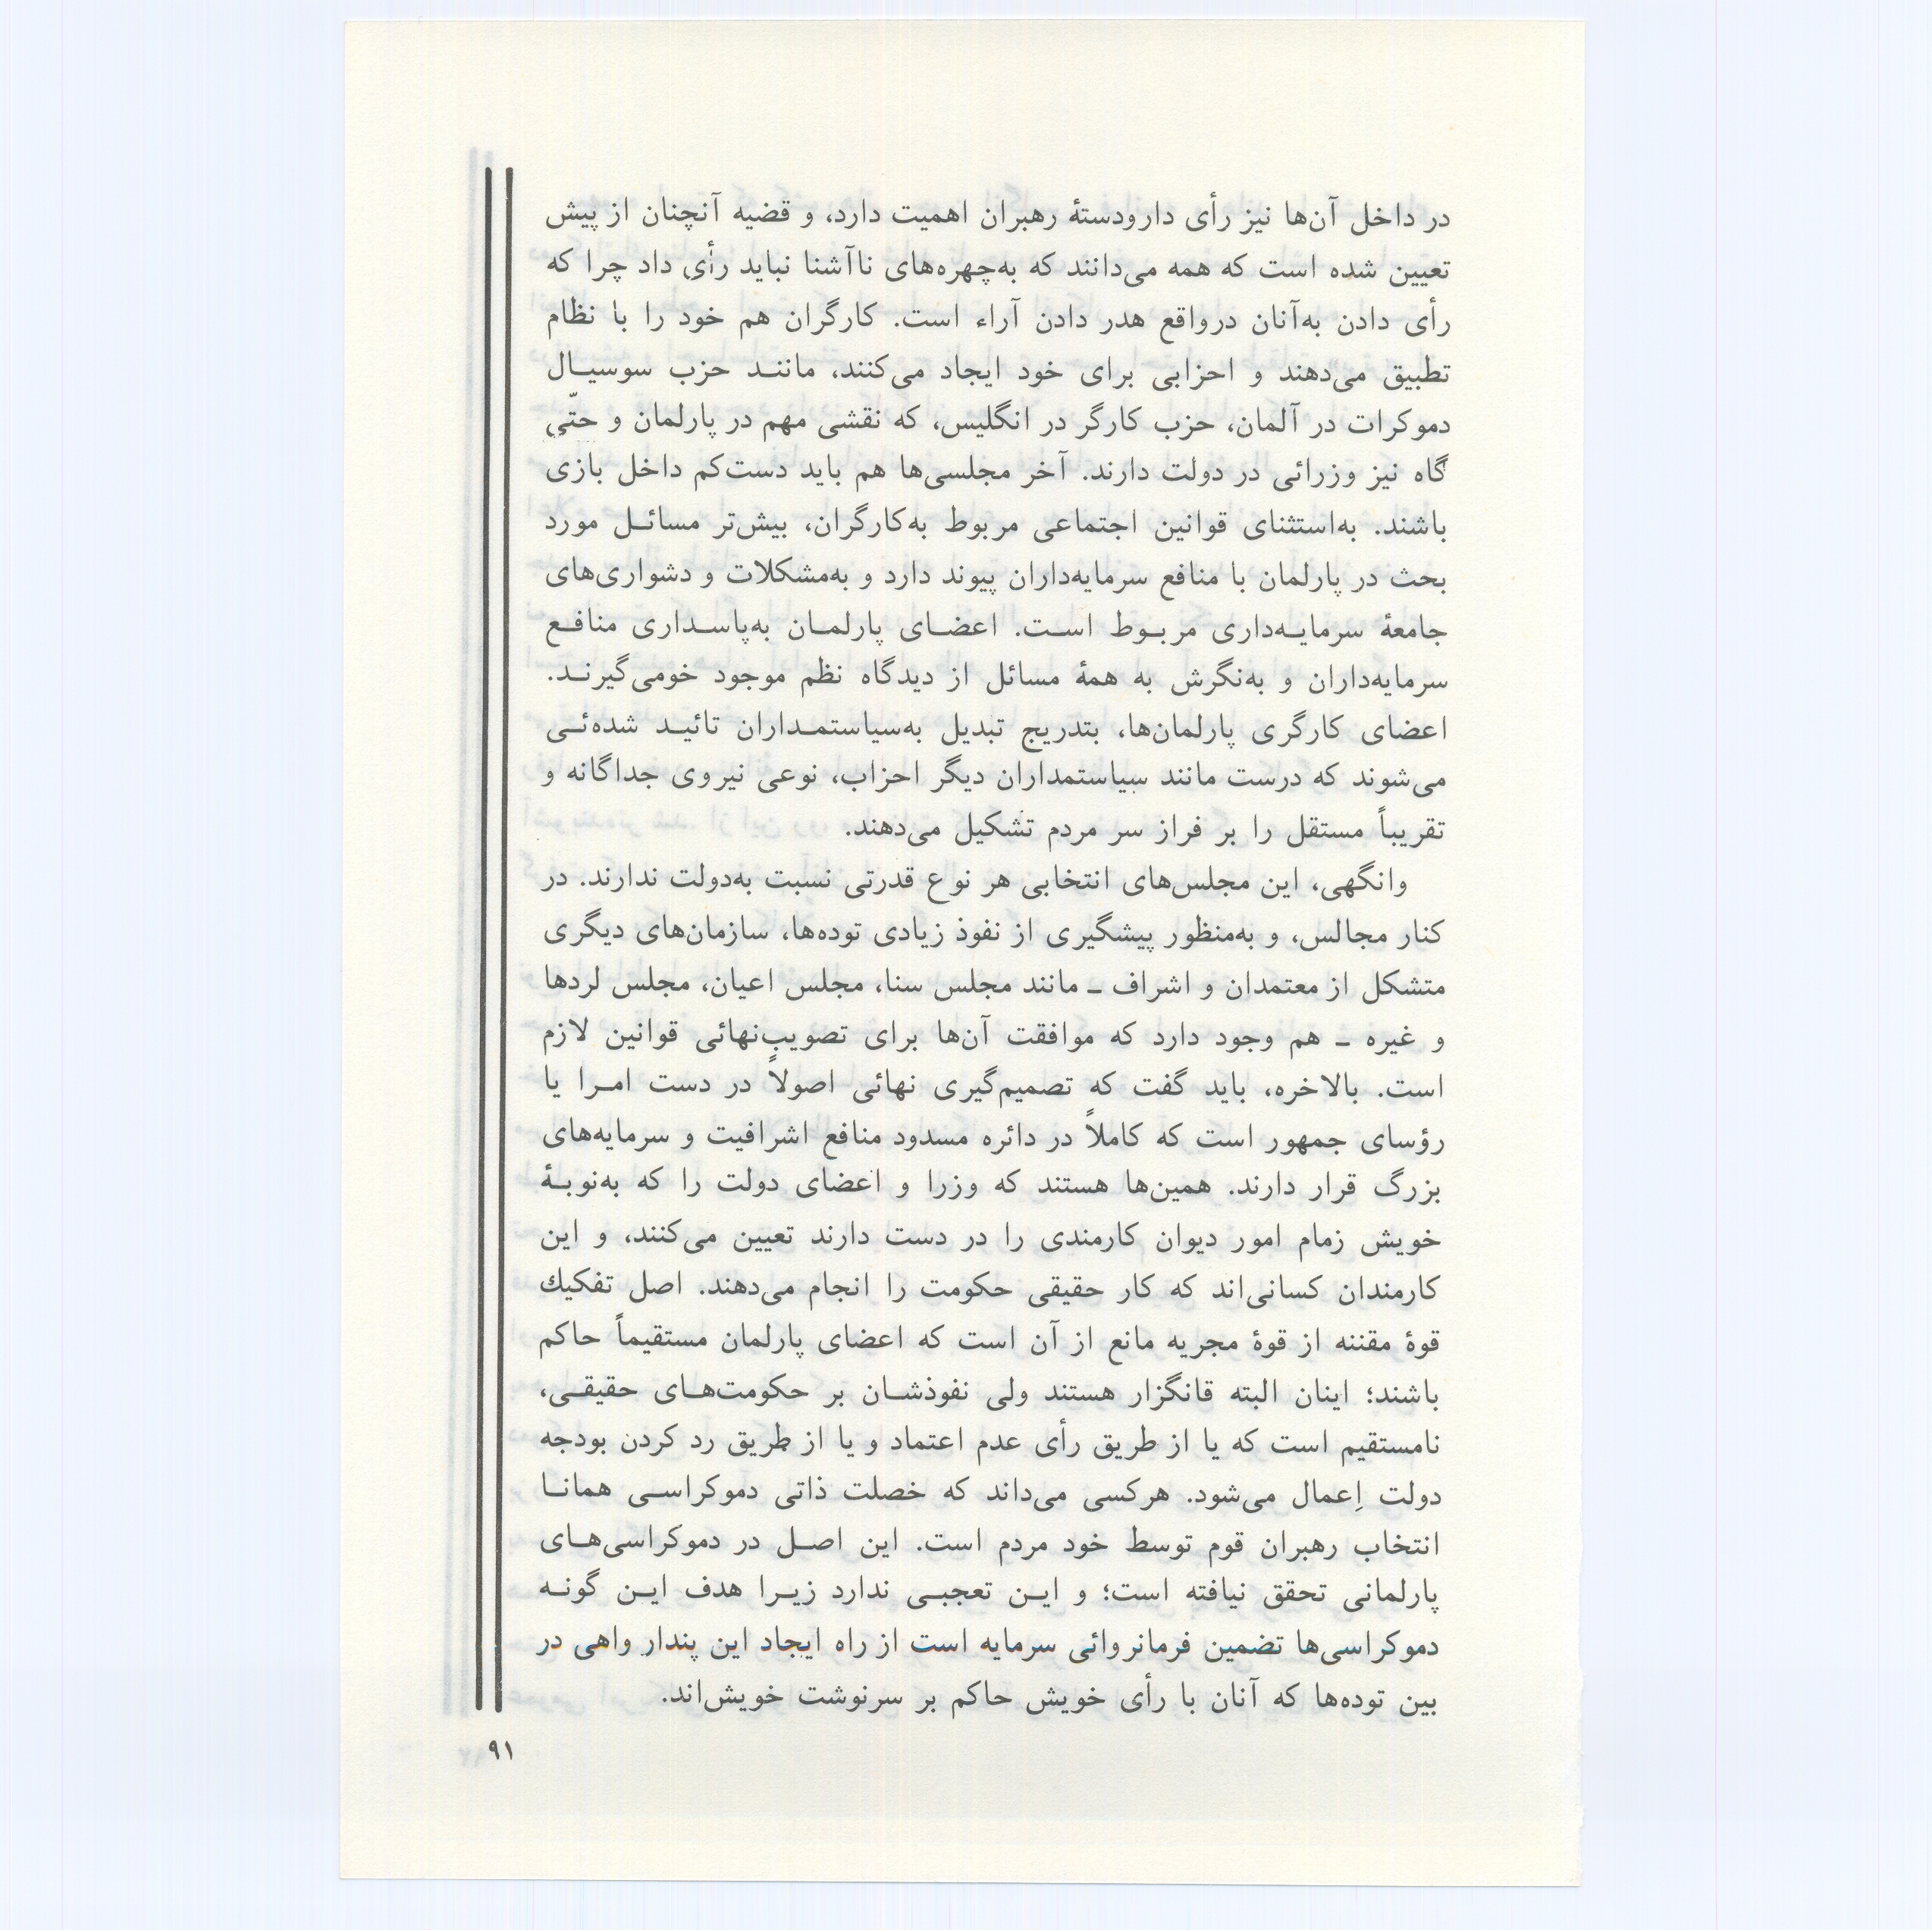 در داخل آن‌ها نیز رأی دارودستهٔ رهبران اهمیت دارد، و قضیه آنچنان از پیش
تعیین شده است که همه می‌دانند که به‌چهره‌های ناآشنا نباید رأی داد چرا که
رأی دادن به‌آنان درواقع هدر دادن آراء است. کارگران هم خود را با نظام
تطبیق می‌دهند و احزابی برای خود ایجاد می‌کنند، مانند حزب سوسیال
دموکرات در آلمان، حزب کارگر در انگلیس، که نقشی مهم در پارلمان و حتّی
گاه نیز وزرائی در دولت دارند. آخر مجلسی‌ها هم باید دست‌کم داخل بازی
باشند. به‌استثنای قوانین اجتماعی مربوط به‌کارگران، بیش‌تر مسائل مورد
بحث در پارلمان با منافع سرمایه‌داران پیوند دارد و به‌مشکلات و دشواری‌های
جامعهٔ سرمایه‌داری مربوط است. اعضای پارلمان به‌پاسداری منافع
سرمایه‌داران و به‌نگرش به همهٔ مسائل از دیدگاه نظم موجود خومی‌گیرند.
اعضای کارگری پارلمان‌ها، بتدریج تبدیل به‌سیاستمداران تائید شده‌ئی
می‌شوند که درست مانند سیاستمداران دیگر احزاب، نوعی نیروی جداگانه و
تقریباً مستقل را بر فراز سر مردم تشکیل می‌دهند.
وانگهی، این مجلس‌های انتخابی هر نوع قدرتی نسبت به‌دولت ندارند. در
کنار مجالس، و به‌منظور پیشگیری از نفوذ زیادی توده‌ها، سازمان‌های دیگری
متشکل از معتمدان و اشراف ـ مانند مجلس سنا، مجلس اعیان، مجلس لردها
و غیره ـ هم وجود دارد که موافقت آن‌ها برای تصویب‌نهائی قوانین لازم
است. بالاخره، باید گفت که تصمیم‌گیری نهائی اصولاً در دست امرا یا
رؤسای جمهور است که کاملاً در دائره مسدود منافع اشرافیت و سرمایه‌های
بزرگ قرار دارند. همین‌ها هستند که وزرا و اعضای دولت را که به‌نوبهٔ
خویش زمام امور دیوان کارمندی را در دست دارند تعیین می‌کنند، و این
کارمندان کسانی‌اند که کار حقیقی حکومت را انجام می‌دهند. اصل تفکیك
قوهٔ مقننه از قوهٔ مجریه مانع از آن است که اعضای پارلمان مستقیماً حاکم
باشند؛ اینان البته قانگزار هستند ولی نفوذشان بر حکومت‌های حقیقی،
نامستقیم است که یا از طریق رأی عدم اعتماد و یا از طریق رد کردن بودجه
دولت اِعمال می‌شود. هرکسی می‌داند که خصلت ذاتی دموکراسی همانا
انتخاب رهبران قوم توسط خود مردم است. این اصل در دموکراسی‌های
پارلمانی تحقق نیافته است؛ و این تعجبی ندارد زیرا هدف این گونه
دموکراسی‌ها تضمین فرمانروائی سرمایه است از راه ایجاد این پندار واهی در
بین توده‌ها که آنان با رأی خویش حاکم بر سرنوشت خویش‌اند.
۹۱